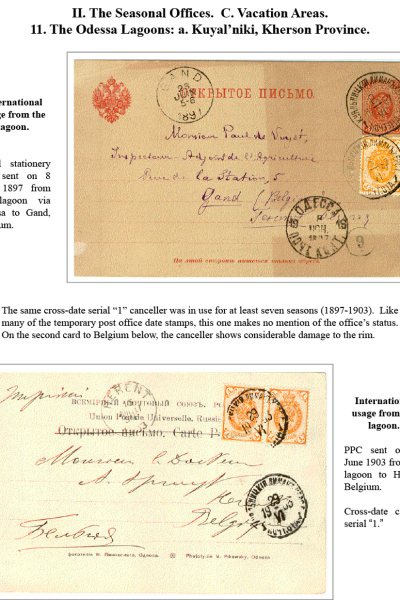 II. The Seasonal Offices. C. Vacation Areas.
11. The Odessa Lagoons: a. Kuyal'niki, Kherson Province.
ernational
ge from the
lagoon.
l stationery
sent on 8
1897 from
lagoon via
sa to Gand,
um.
GAND
1897
ОТКРЫТОЕ ПИСЬМО.
Monsieur Paul de Vuyst,
Inspecteur-Adjoint de l'Agriculture
Rue de la Station, 5
Gand (Belg
ОДЕССА
На этой стороне пишется только адресъ.
The same cross-date serial “1” canceller was in use for at least seven seasons (1897-1903). Like
many of the temporary post office date stamps, this one makes no mention of the office's status.
On the second card to Belgium below, the canceller shows considerable damage to the rim.
Imprimé
ВСЕМІРНЫЙ ПОЧТОВЫЙ СОЮЗЪ.
Union Postale Universelle. Russie
Открытое письмо. Carte P
Monsieur le Docteur
Belgi
Бельгія
Internation
usage from
lagoon.
PPC sent o
June 1903 fro
lagoon to H
Belgium.
Cross-date c
serial “1.”